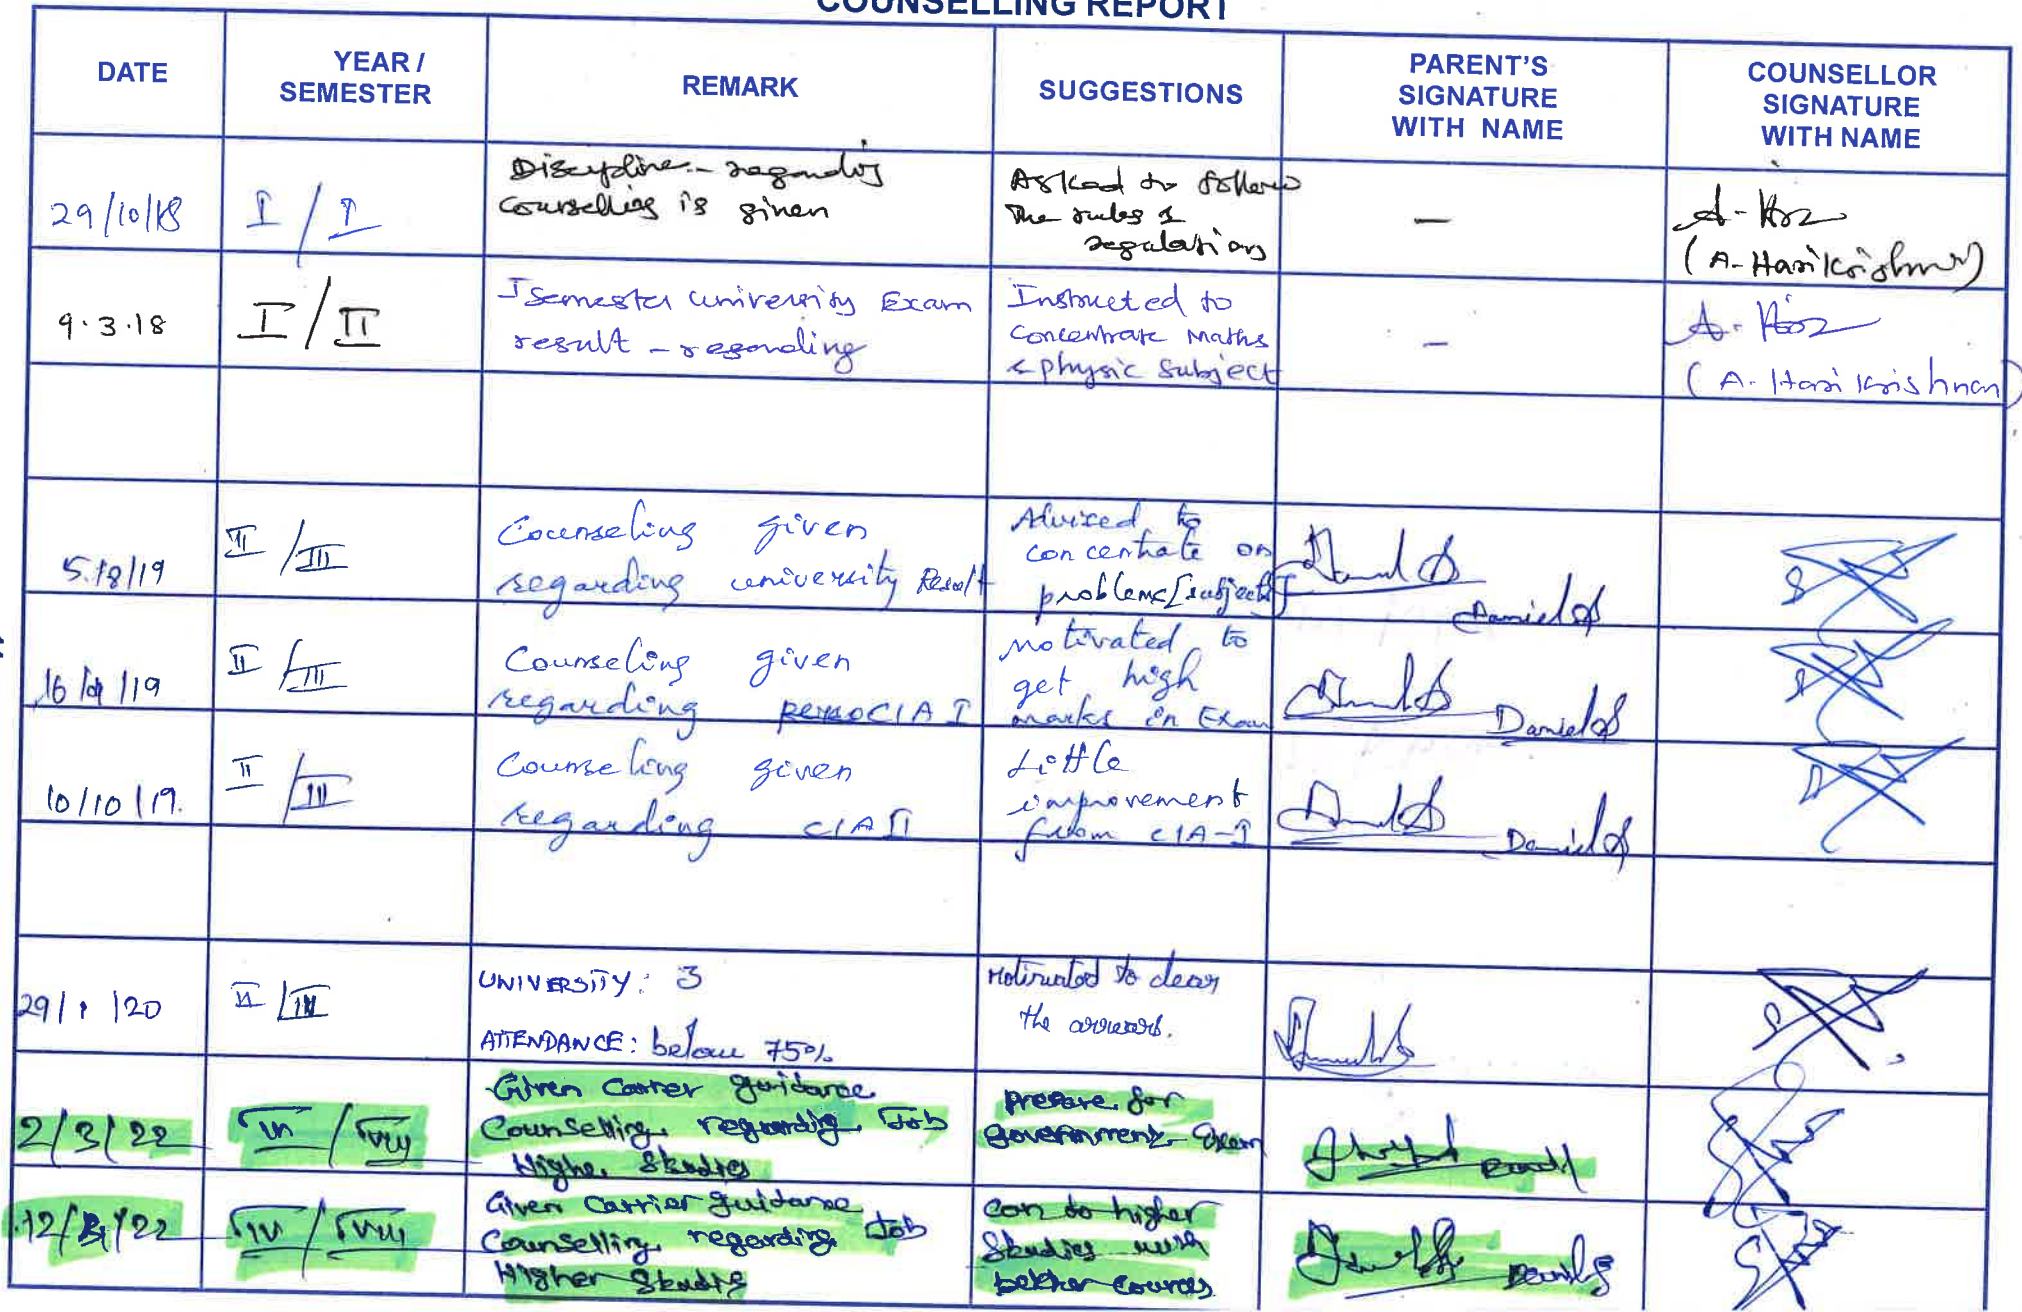 COUNSELLING REPORT
DATE
YEAR /
SEMESTER
REMARK
SUGGESTIONS
PARENT'S
SIGNATURE
WITH NAME
COUNSELLOR
SIGNATURE
WITH NAME
29/10/18
I / I
Discipline - regarding
Counselling is given
Asked to follow
the rules &
regulations
-
(A. Harikrishnan)
9.3.18
I / II
I Semester university Exam
result - regarding
Instructed to
Concentrate Maths
& physic subject
-
(A. Harikrishnan)
5/8/19
II / III
Counseling given
regarding university Result
Advised to
concentrate on
problems [subject]
Daniel S
16/9/19
II / III
Counseling given
regarding CIA I
Motivated to
get high
marks in Exam
Daniel S
10/10/19.
II / III
Counseling given
regarding CIA II
Little
improvement
from CIA-I
Daniel S
29/1/20
UNIVERSITY: 3
ATTENDANCE: below 75%
Motivated to clear
the arrears.
2/3/22
IV / VIII
Given Carrer guidance
Counselling regarding Job
Higher Studies
prepare for
government Exam
12/3/22
IV / VIII
Given Carrier guidance
Counselling regarding Job
Higher Studies
can do higher
Studies with
better cources